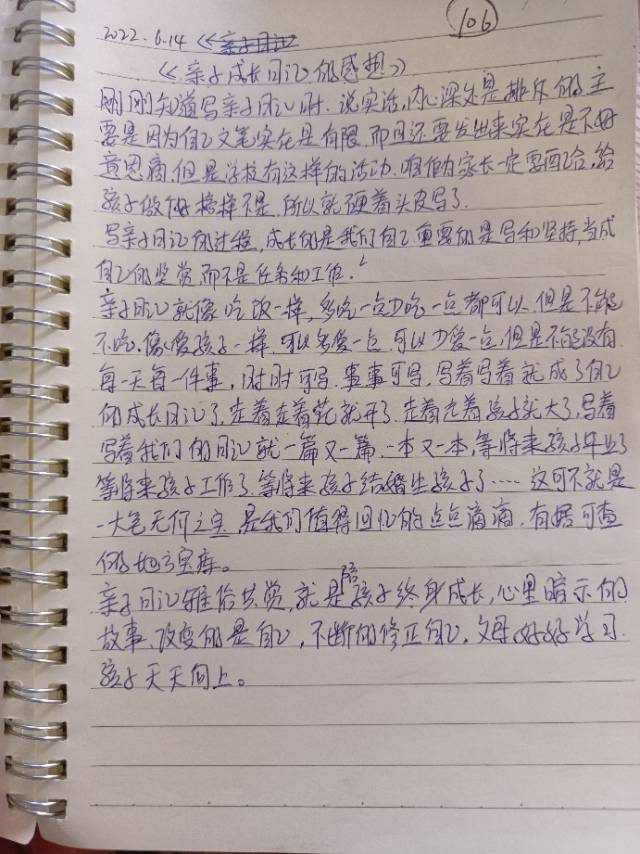 106
2022.6.14 《亲子日记
《亲子成长日记的感想》
刚刚知道写亲子日记时，说实话，内心深处是排斥的，主
要是因为自己文笔实在是有限，而且还要发出来实在是不好
意思滴，但是学校有这样的活动，咱作为家长一定要配合，给
孩子做好榜样不是，所以就硬着头皮写了。
写亲子日记的过程，成长的是我们自己，重要的是写和坚持，当成
自己的奖赏，而不是任务和工作。
亲子日记就像吃饭一样，多吃一点少吃一点都可以，但是不能
不吃，像爱孩子一样，可以多爱一点，可以少爱一点，但是不能没有，
每一天每一件事，时时可写，事事可写，写着写着就成了自己
的成长日记了，走着走着花就开了，走着走着孩子就大了，写着
写着我们的日记就一篇又一篇，一本又一本，等将来孩子毕业了
等将来孩子工作了，等将来孩子结婚生孩子了……这可不就是
一大笔无价之宝，是我们值得回忆的点点滴滴，有据可查
的地方宝库。
亲子日记雅俗共赏，就是陪孩子终身成长，心里暗示的
故事，改变的是自己，不断的修正自己，父母好好学习
孩子天天向上。